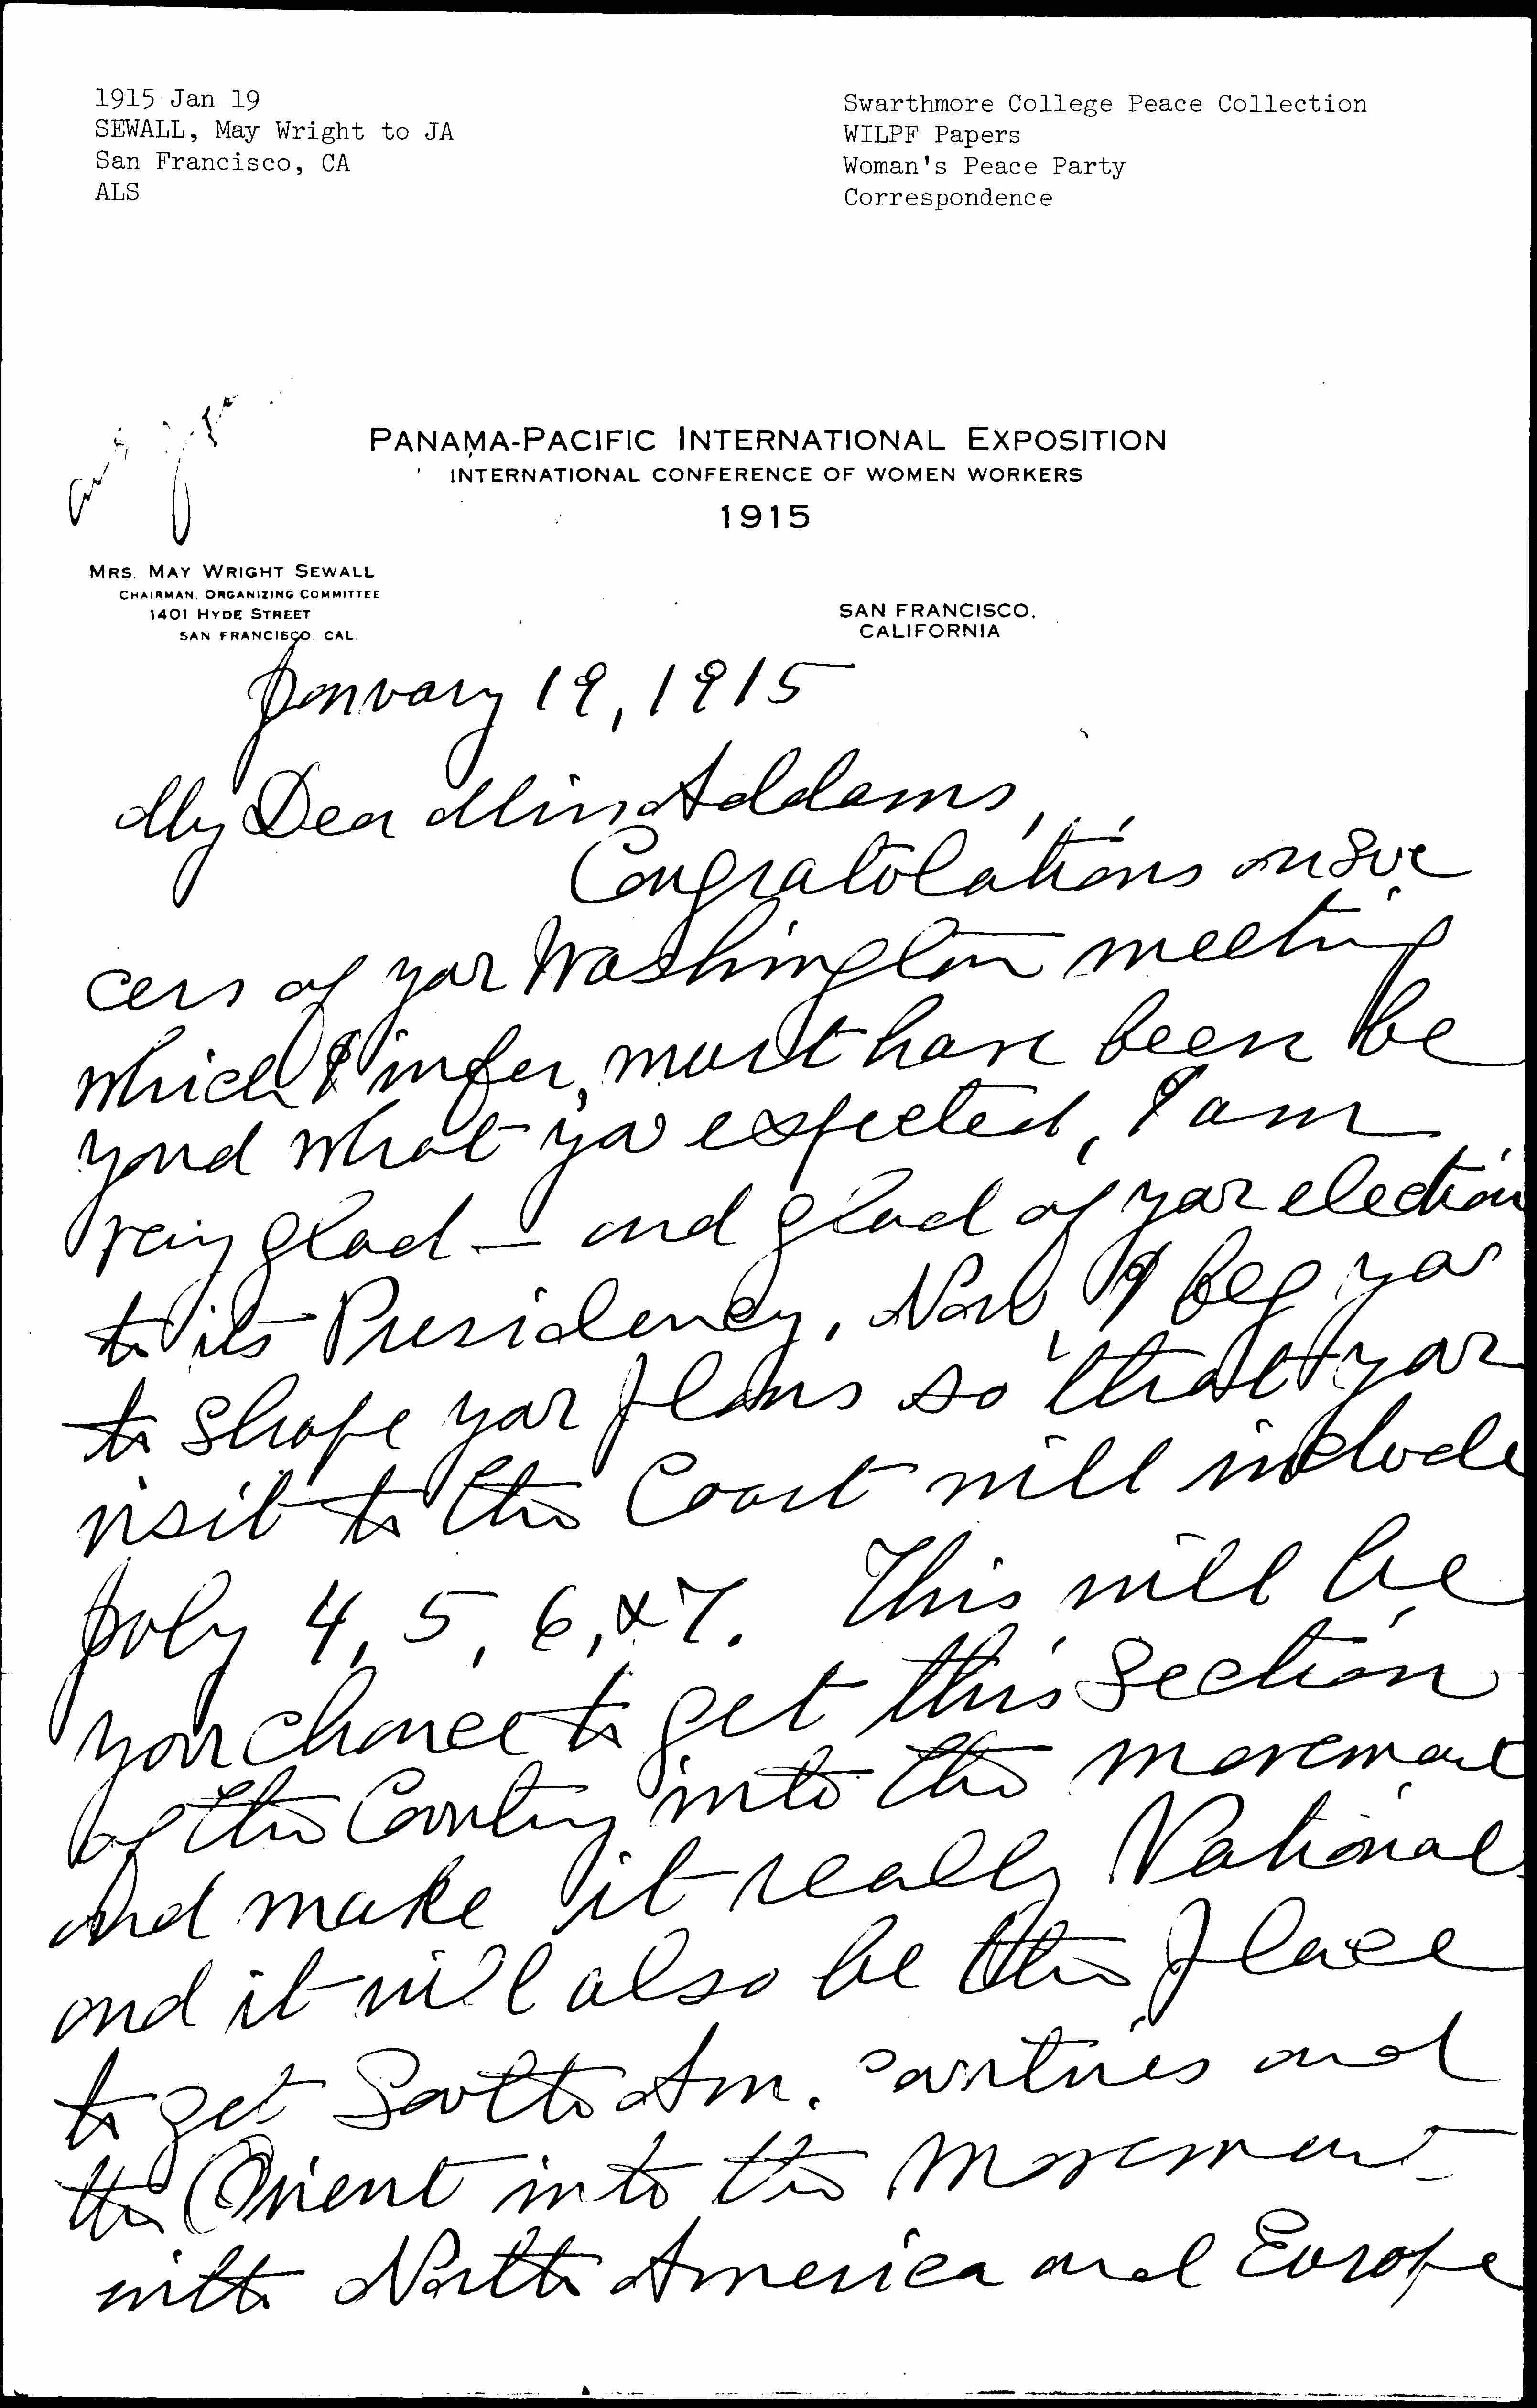 1915 Jan 19
SEWALL, May Wright to JA
San Francisco, CA
ALS
Swarthmore College Peace Collection
WILPF Papers
Woman's Peace Party
Correspondence
PANAMA-PACIFIC INTERNATIONAL EXPOSITION
INTERNATIONAL CONFERENCE OF WOMEN WORKERS
1915
MRS. MAY WRIGHT SEWALL
CHAIRMAN, ORGANIZING COMMITTEE
1401 HYDE STREET
SAN FRANCISCO, CAL.
SAN FRANCISCO,
CALIFORNIA
January 19, 1915
My Dear Miss Addams,
Congratulations on suc
cess of your Washington meeting
which I infer, must have been be
yond what you expected, I am
very glad — and glad of your election
to its Presidency. Now, I beg you
to shape your plans so that your
visit to the Coast will include
July 4, 5, 6, & 7. This will be
your chance to get this Section
of the Country into the movement
and make it really National
and it will also be the place
to get South Am. countries and
the Orient into the movement
with North America and Europe